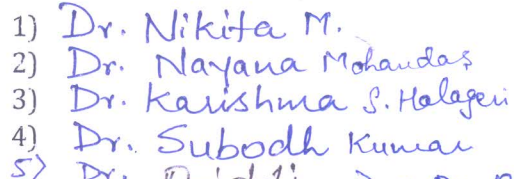 1) Dr. Nikita M.
2) Dr. Nayana Mohandas
3) Dr. Karishma S. Halageri
4) Dr. Subodh Kumar
5) Dr.